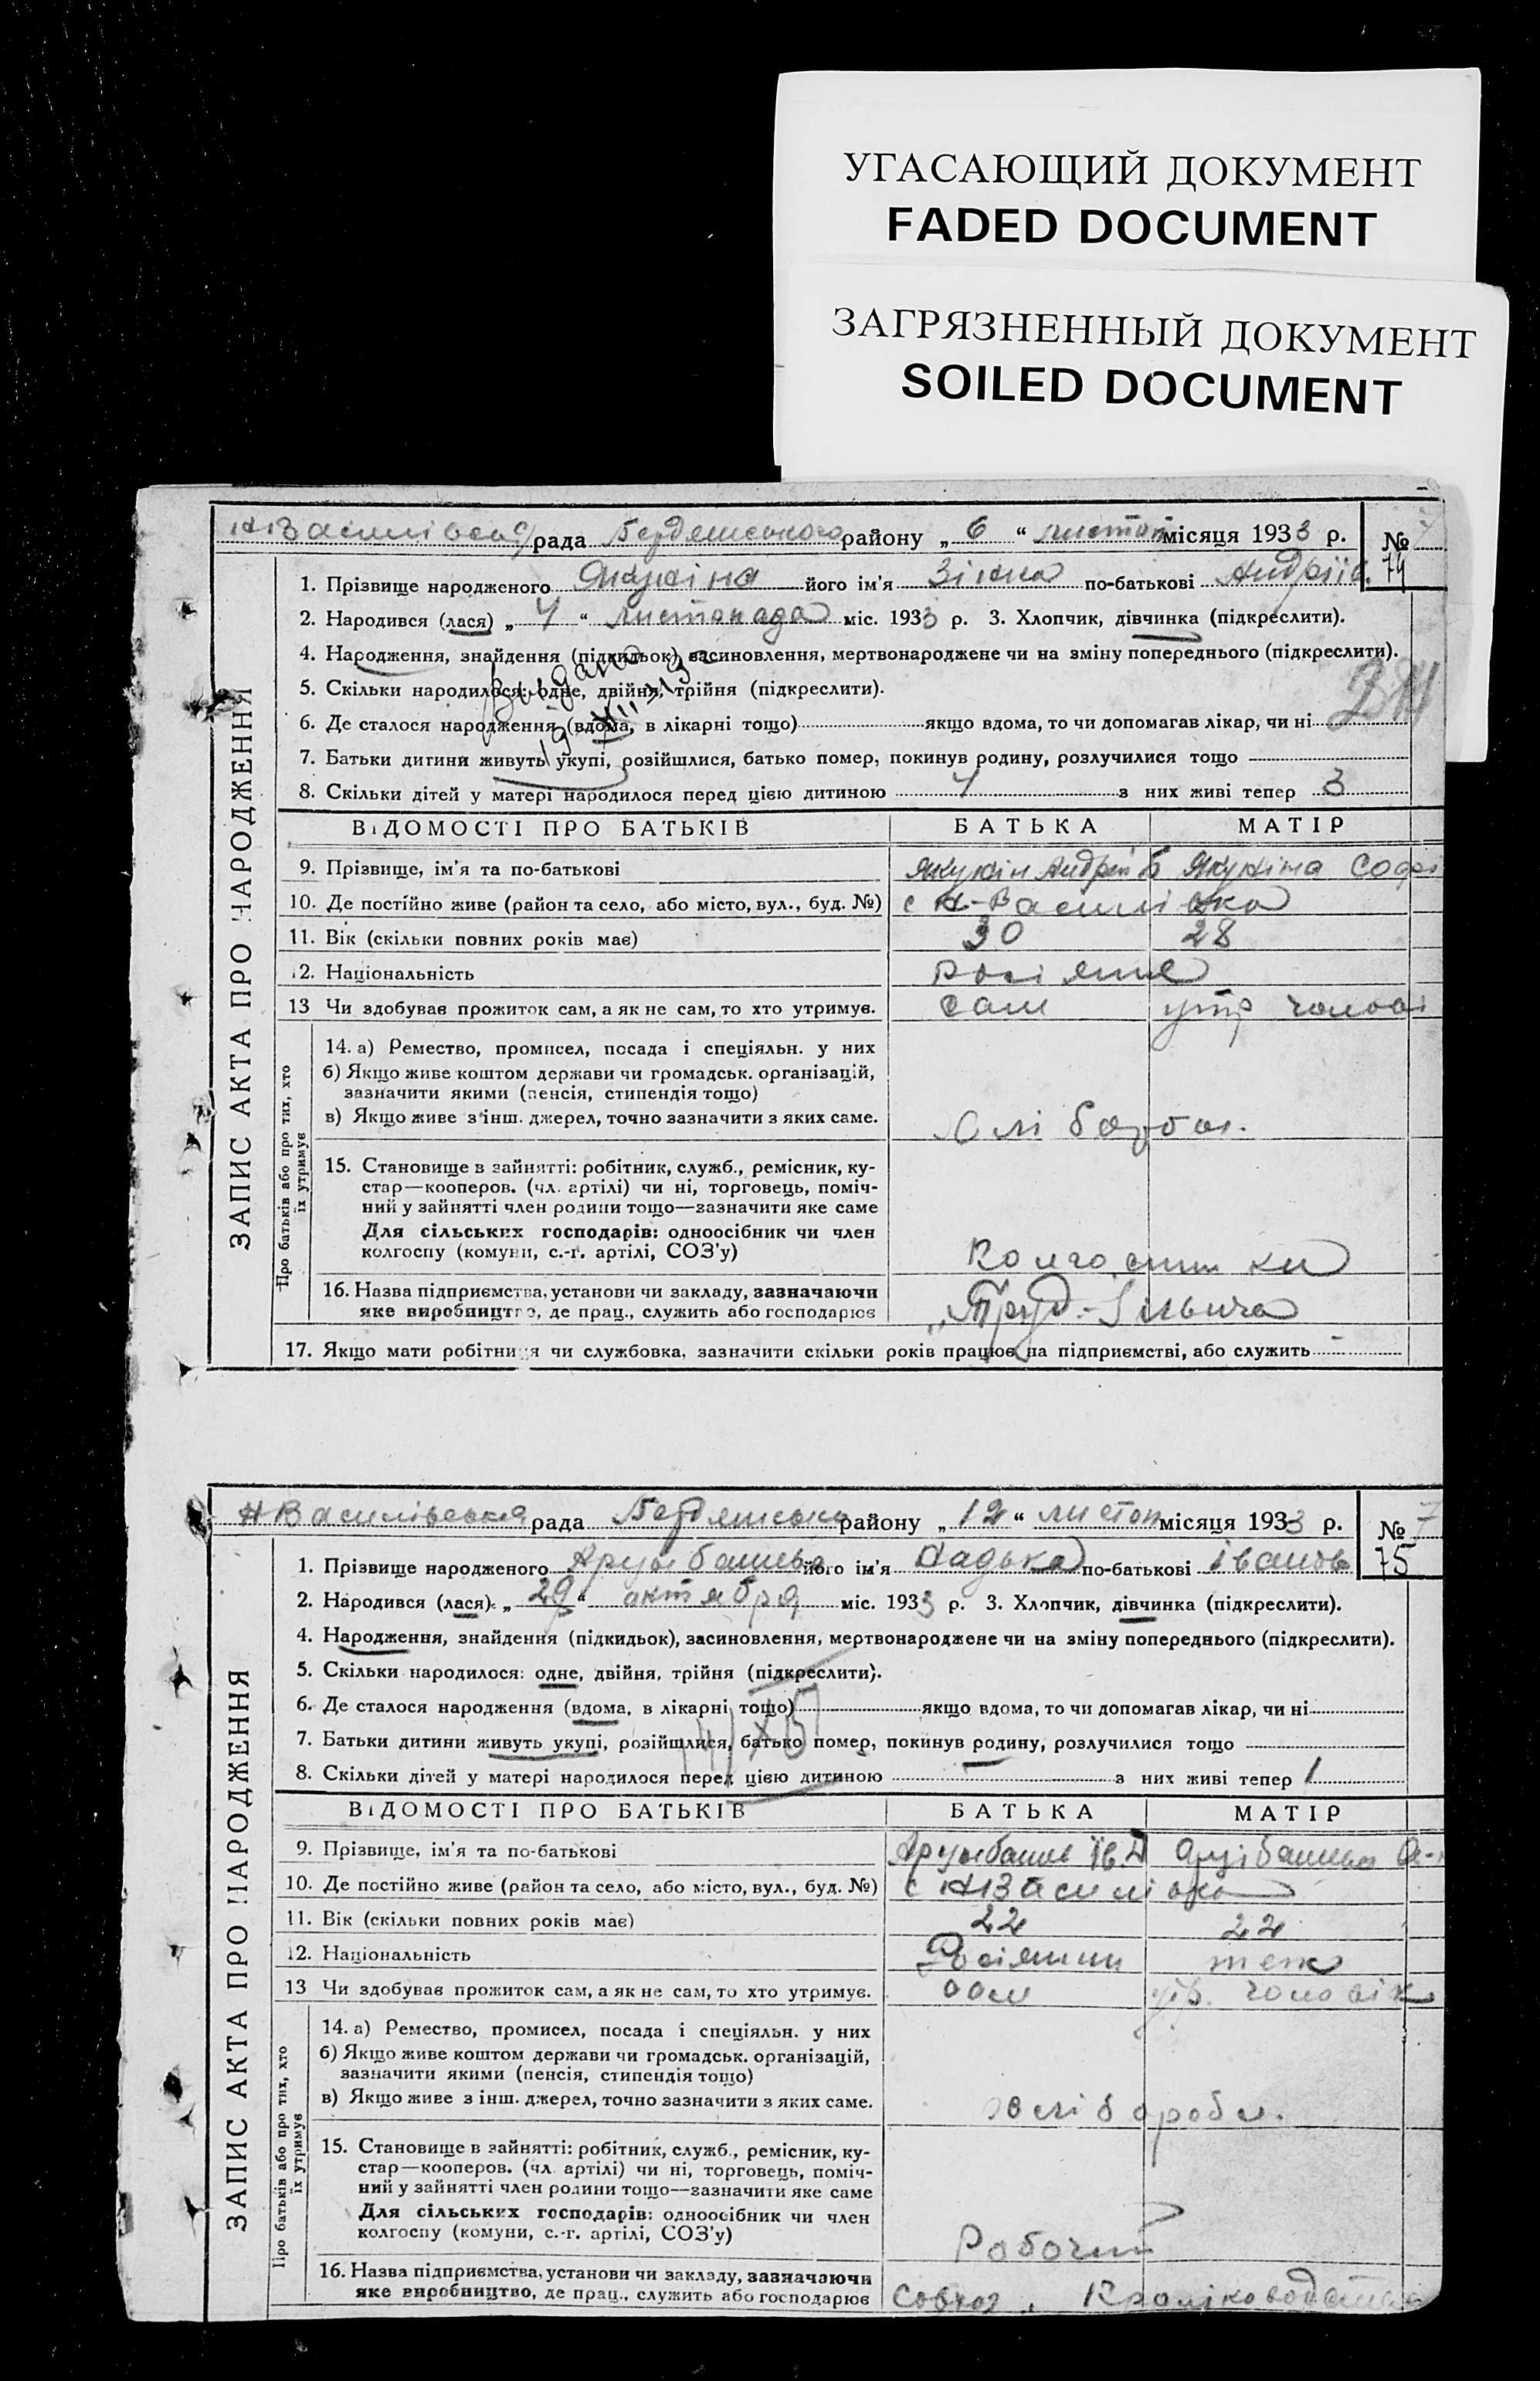 УГАСАЮЩИЙ ДОКУМЕНТ
FADED DOCUMENT
ЗАГРЯЗНЕННЫЙ ДОКУМЕНТ
SOILED DOCUMENT
рада району „ 6 “ листоп місяця 1933 р. №
74
1. Прізвище народженого Якукіна його ім'я Зінна по-батькові Андріів.
2. Народився (лася) „ 4 “ листопада міс. 1933 р. 3. Хлопчик, дівчинка (підкреслити).
4. Народження, знайдення (підкидьок), засиновлення, мертвонароджене чи на зміну попереднього (підкреслити).
5. Скільки народилося: одне, двійня, трійня (підкреслити).
6. Де сталося народження (вдома, в лікарні тощо) якщо вдома, то чи допомагав лікар, чи ні
7. Батьки дитини живуть укупі, розійшлися, батько помер, покинув родину, розлучилися тощо
8. Скільки дітей у матері народилося перед цією дитиною 4 з них живі тепер 3
ВІДОМОСТІ ПРО БАТЬКІВ БАТЬКА МАТІР
9. Прізвище, ім'я та по-батькові Якукін Андрей Якукіна Софі
10. Де постійно живе (район та село, або місто, вул., буд. №) с Н-Василівка
11. Вік (скільки повних років має) 30 28
12. Національність Росіяне
13 Чи здобував прожиток сам, а як не сам, то хто утримує. Сам утр чолові
14. а) Ремество, промисел, посада і спеціяльн. у них
б) Якщо живе коштом держави чи громадськ. організацій,
зазначити якими (пенсія, стипендія тощо)
в) Якщо живе з інш. джерел, точно зазначити з яких саме.
15. Становище в зайнятті: робітник, служб., ремісник, ку-
стар—кооперов. (чл. артілі) чи ні, торговець, поміч-
ний у зайнятті член родини тощо—зазначити яке саме
Для сільських господарів: одноосібник чи член
колгоспу (комуни, с.-г. артілі, СОЗ'у)
Колгоспники
16. Назва підприємства, установи чи закладу, зазначаючи
яке виробництво, де прац., служить або господарює „Труд-Ілвича
17. Якщо мати робітниця чи службовка, зазначити скільки років працює на підприємстві, або служить
ЗАПИС АКТА ПРО НАРОДЖЕННЯ
Про батьків або про тих, хто
їх утримує
НВасилівська рада району „ 12 “ листоп місяця 1933 р. № 7
75
1. Прізвище народженого його ім'я Надька по-батькові Іванов
2. Народився (лася): „ 29 “ октября міс. 1933 р. 3. Хлопчик, дівчинка (підкреслити).
4. Народження, знайдення (підкидьок), засиновлення, мертвонароджене чи на зміну попереднього (підкреслити).
5. Скільки народилося: одне, двійня, трійня (підкреслити).
6. Де сталося народження (вдома, в лікарні тощо) якщо вдома, то чи допомагав лікар, чи ні
7. Батьки дитини живуть укупі, розійшлися, батько помер, покинув родину, розлучилися тощо
8. Скільки дітей у матері народилося перед цією дитиною з них живі тепер 1
ВІДОМОСТІ ПРО БАТЬКІВ БАТЬКА МАТІР
9. Прізвище, ім'я та по-батькові
10. Де постійно живе (район та село, або місто, вул., буд. №) с НВасилівка
11. Вік (скільки повних років має) 22 22
12. Національність Росіянин теж
13 Чи здобував прожиток сам, а як не сам, то хто утримує. сам утр. чоловік
14. а) Ремество, промисел, посада і спеціяльн. у них
б) Якщо живе коштом держави чи громадськ. організацій,
зазначити якими (пенсія, стипендія тощо)
в) Якщо живе з інш. джерел, точно зазначити з яких саме.
15. Становище в зайнятті: робітник, служб., ремісник, ку-
стар—кооперов. (чл. артілі) чи ні, торговець, поміч-
ний у зайнятті член родини тощо—зазначити яке саме
Для сільських господарів: одноосібник чи член
колгоспу (комуни, с.-г. артілі, СОЗ'у)
Робочий
16. Назва підприємства, установи чи закладу, зазначаючи
яке виробництво, де прац., служить або господарює Совхоз
ЗАПИС АКТА ПРО НАРОДЖЕННЯ
Про батьків або про тих, хто
їх утримує